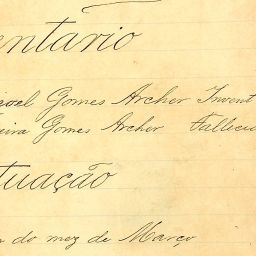 entario
oel Gomes Archer Invent
eira Gomes Archer Fallecid
tuação
do mez de Março